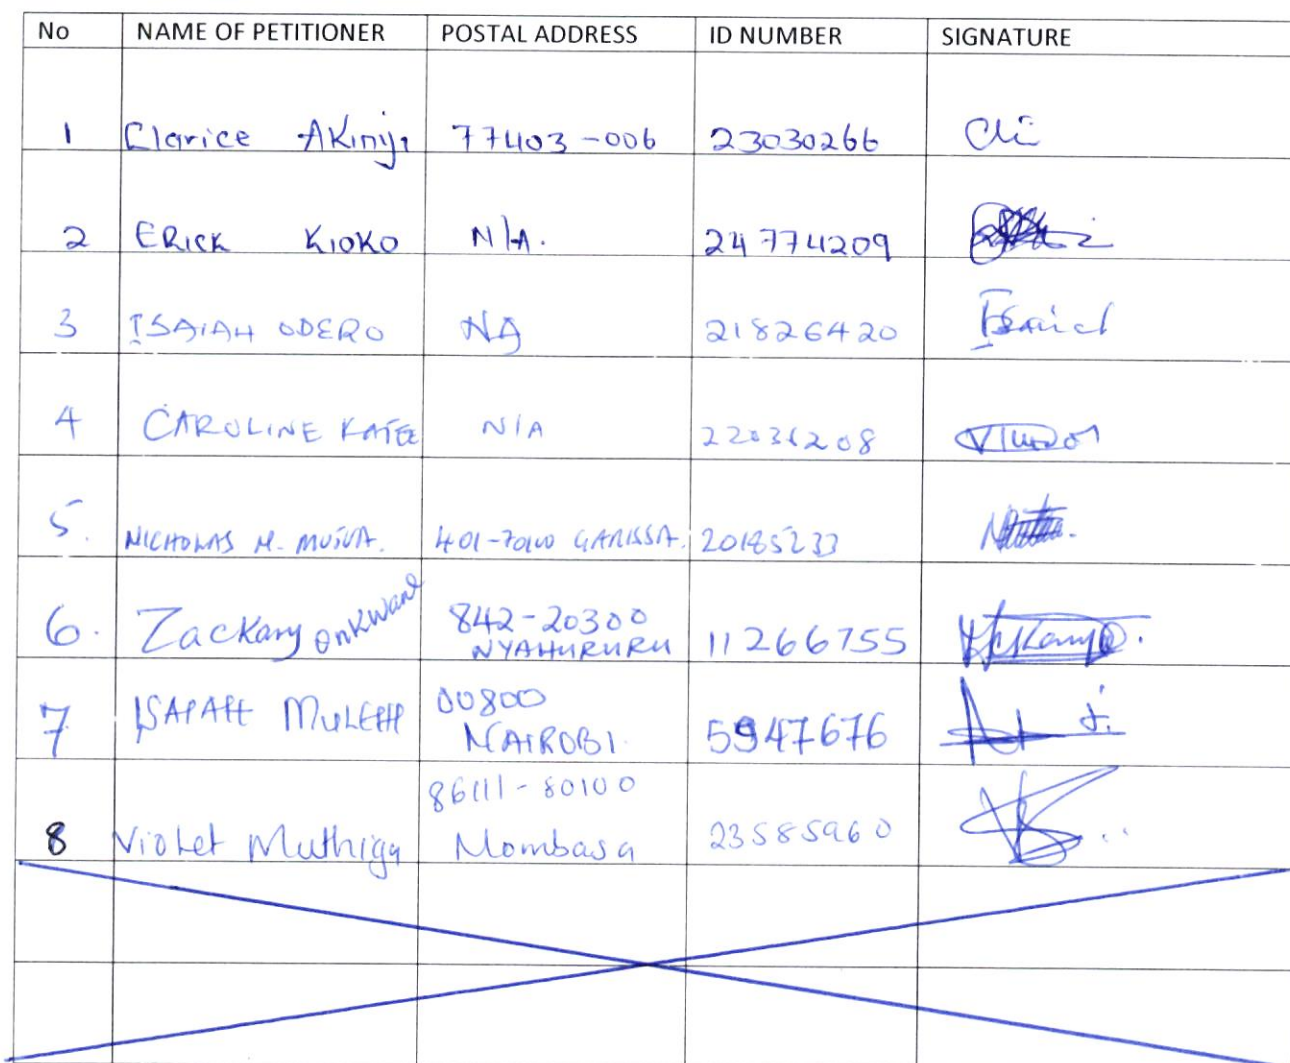 No NAME OF PETITIONER POSTAL ADDRESS ID NUMBER SIGNATURE
1 Clarice Akinyi 77403-006 23030266
2 ERICK KIOKO N/A. 24774209
3 ISAIAH ODERO NA 21826420
4 CAROLINE N/A 22036208
5. NICHOLAS M. GARISSA. 20185233
6. Zackary Onkware 842-20300 NYAHURURU 11266755
7 00800 NAIROBI. 5947676
8 Violet Muthiga 86111-80100 Mombasa 23585960